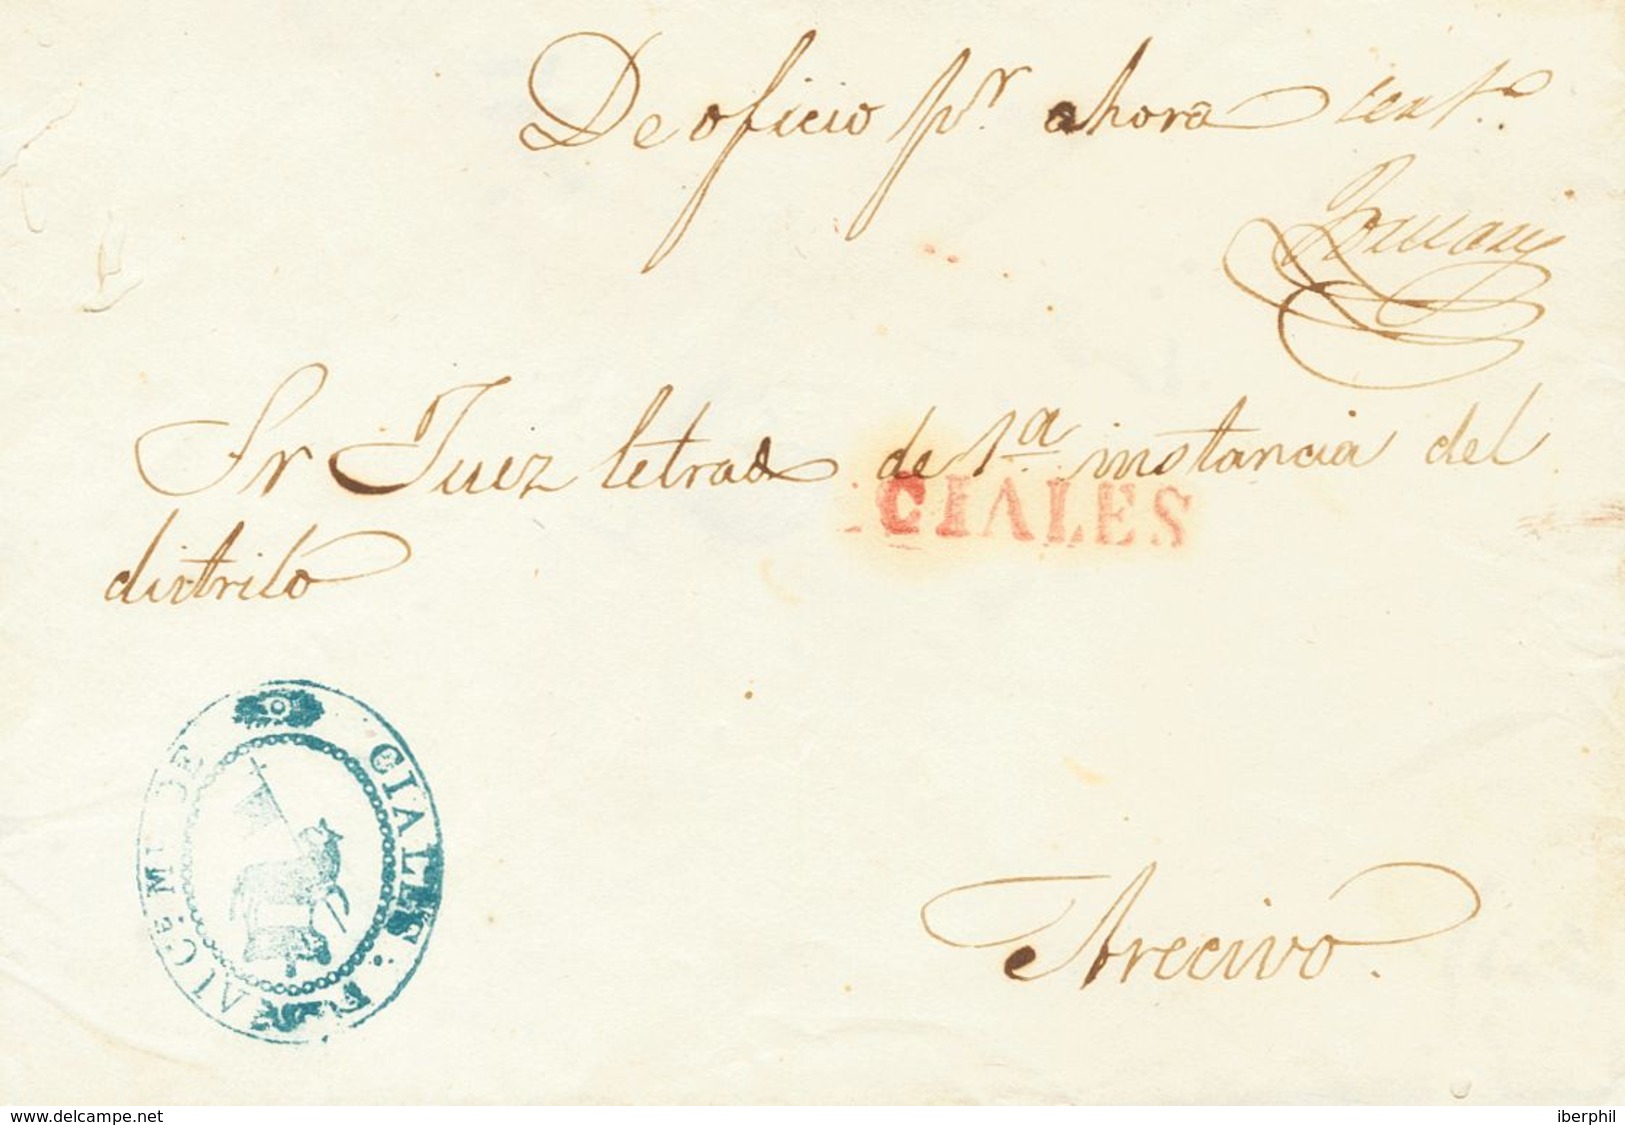 De oficio pr. ahora
Sr Juez letrado de 1a. instancia del
CIALES
distrito
DE CIALES.
Arecivo.
www.delcampe.net
iberphil